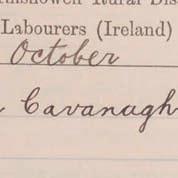 Rural Dis
Labourers (Ireland)
October
Cavanagh